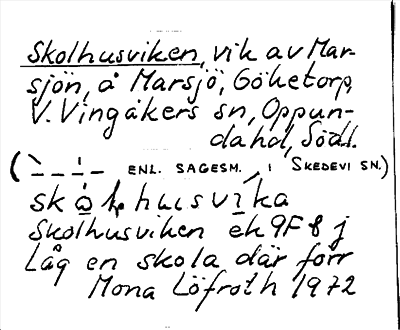 Skolhusviken, vik av Mar-
sjön, å Marsjö, Göketorp,
V. Vingåkers sn, Oppun-
dahd, Södl.
(– – – ENL. SAGESM. I SKEDEVI SN.)
Skolhusviken ek 9F 8 j
Låg en skola där förr
Mona Löfroth 1972